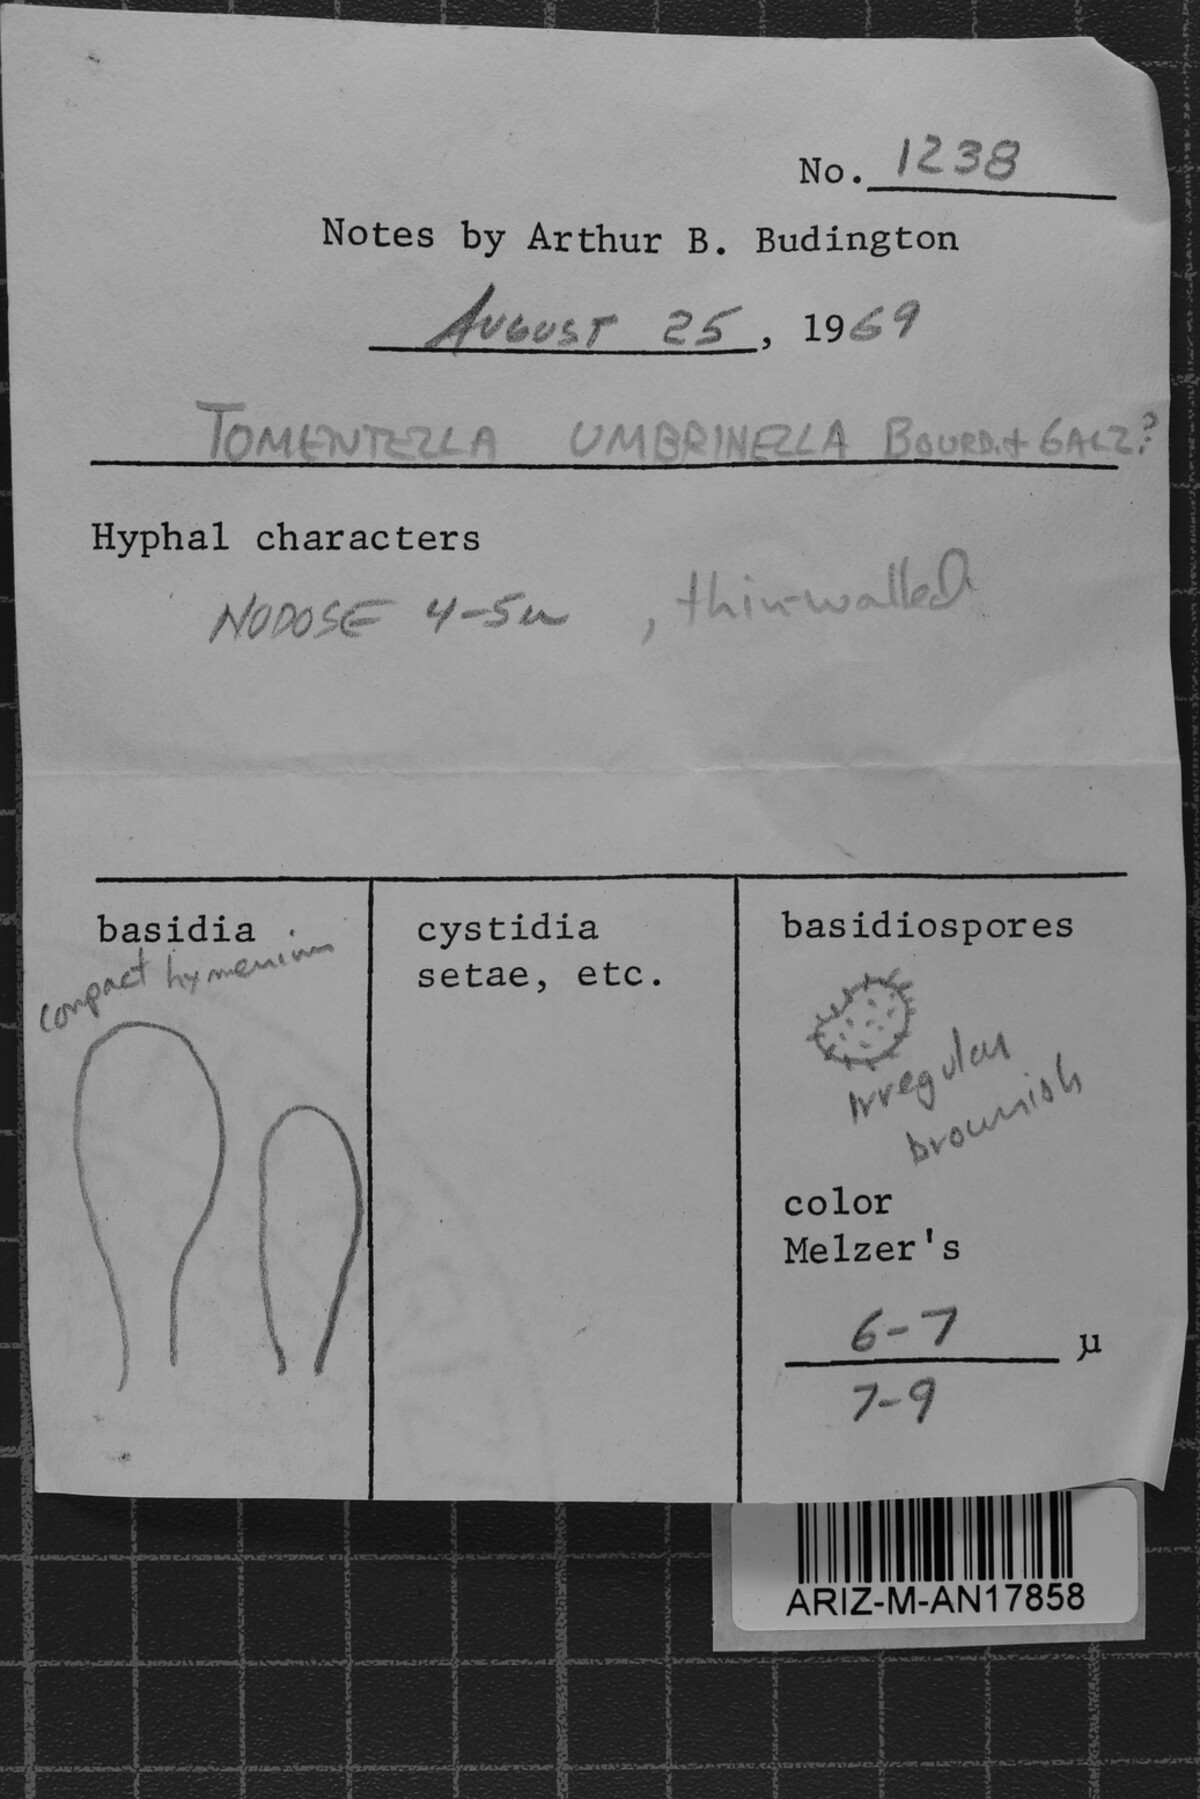 No. 1238
Notes by Arthur B. Budington
AUGUST 25, 1969
TOMENTELLA UMBRINELLA BOURD. + GALZ?
Hyphal characters
NODOSE 4-5u , thin-walled
basidia
compact hymenium
cystidia
setae, etc.
basidiospores
irregular
brownish
color
Melzer's
6-7 µ
7-9
ARIZ-M-AN17858